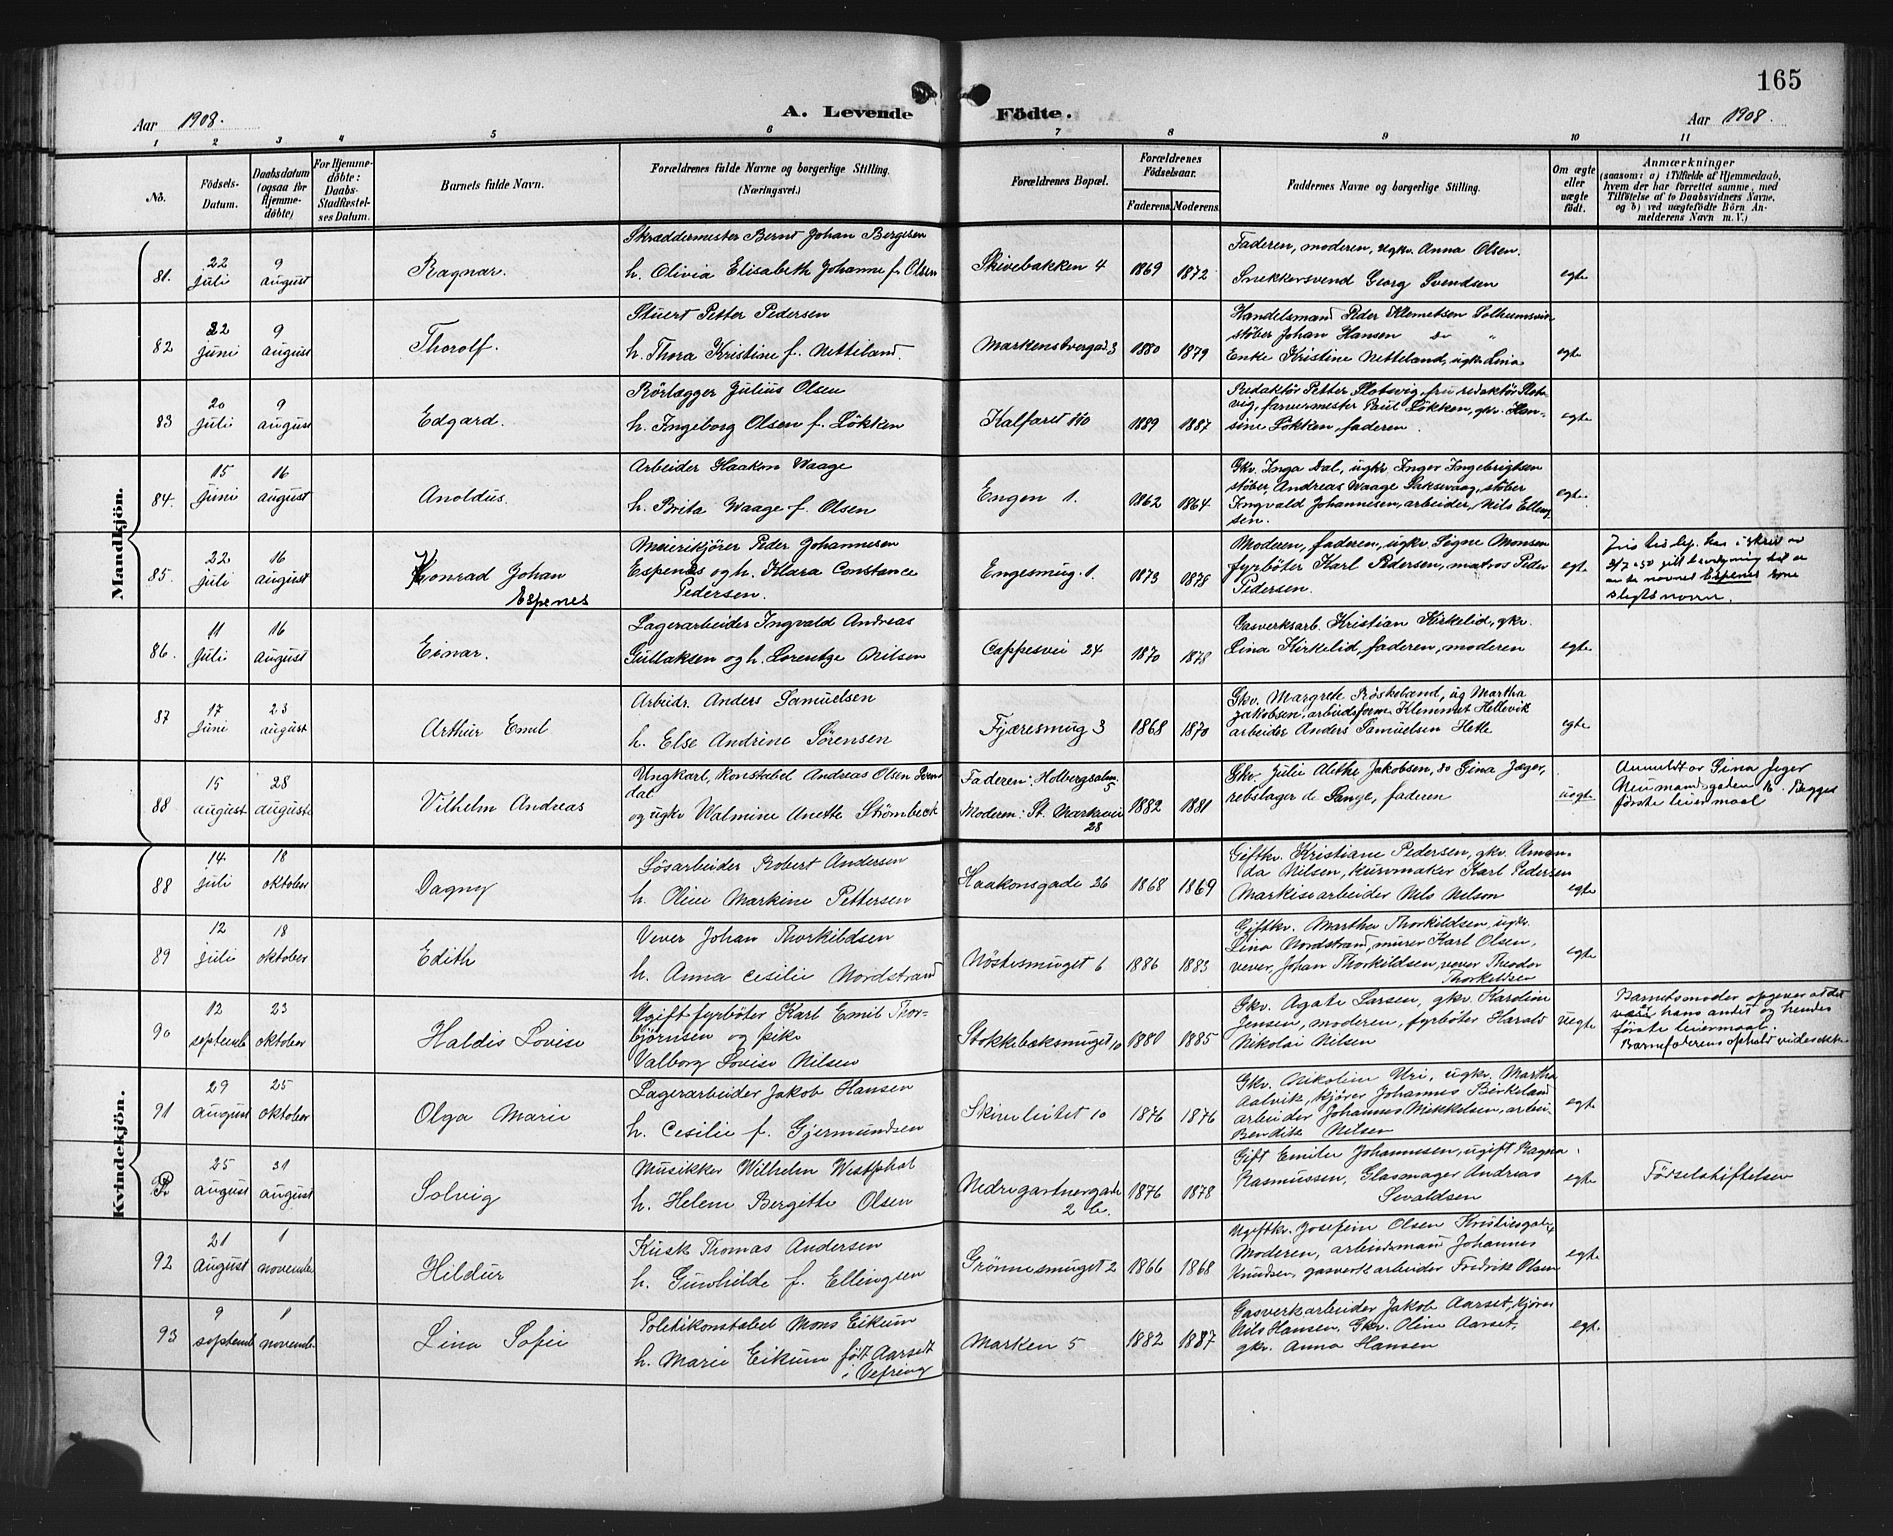 165
Aar 1908.
A. Levende Födte.
Aar 1908.
1 2 3 4 5 6 7 8 9 10 11
No.
Födsels-Datum.
Daabsdatum (ogsaa for Hjemme-döbte)
For Hjemme-döbte: Daabs-Stadfæstel-ses Datum.
Barnets fulde Navn.
Forældrenes fulde Navne og borgerlige Stilling.
(Næringsvei.)
Forældrenes Bopæl.
Forældrenes Födselsaar.
Faderens. Moderens.
Faddernes Navne og borgerlige Stilling.
Om ægte eller uægte födt.
Anmærkninger
(saasom: a) i Tilfælde af Hjemmedaab,
hvem der har forrettet samme, med
Tilföielse af to Daabsvidners Navne,
og b) ved uægtefödte Börn An-
melderens Navn m. V.)
Mandkjön.
81. 22 juli 9 august Ragnar.
Skræddermester Bernt Johan Bergesen
h. Olivia Elisabeth Johanne f. Olsen
Skivebakken 4 1869 1872
Faderen, moderen, ugkv. Anna Olsen.
Snekkersvend Georg Svendsen
egte
82 22 juni 9 august Thorolf.
Stuert Petter Pedersen
h. Thora Kristine f. Netteland.
Markenstvergad. 3 1880 1879
Handelsmand Peder Klemetsen Solheimsvik
støber Johan Hansen do "
Enke Kristine Netteland, ugkv. Lina
egte
83 20 juli 9 august Edgard.
Rörlægger Julius Olsen
h. Ingeborg Olsen f. Løkken
Kalfaret 110 1889 1887
Redaktör Petter Slotsvig, fru redaktör Slots-
vig, farvermester Paul Løkken, gkv. Han-
sine Løkken, faderen.
egte
84. 15 juni 16 august Anoldus.
Arbeider Haakon Waage
h. Brita Waage f. Olsen
Engen 1. 1862 1864
Gkv. Inga Dal, ugkv. Inger Ingebrigtsen
støber, Andreas Waage Laksevaag, støber
Ingvald Johannesen, arbeider, Nils Elling-
sen.
egte
85. 22 juli 16 august Konrad Johan
Espenes
Meierikjører Peder Johannesen
Espenes og h. Klara Constance
Pedersen.
Engesmug. 1. 1873 1878
Moderen, faderen, ugkv. Signe Monsen
fyrbøter Karl Pedersen, matros Peder
Pedersen.
egte
Justisdep. har i skriv av
3/7 - 50 gitt bevilgning til
navnet Espenes som
slegtsnavn.
86. 11 juli 16 august Einar.
Lagerarbeider Ingvald Andreas
Gullaksen og h. Lorentze Nilsen
Cappesvei 24 1870 1878
Gasverksarb. Kristian Kirkelid, gkv.
Lina Kirkelid, faderen, moderen
egte
87 17 juni 23 august Arthur Emil
Arbeidr. Anders Samuelsen
h. Else Andrine Sørensen
Fjæresmug 3 1868 1870
Gkv. Margrete Røskeland, ug Martha
Jakobsen, arbeidsform. Klemmet Hellevik
arbeider Anders Samuelsen Hetle
egte
88 15 august 28 august Vilhelm Andreas
Ungkarl, Konstabel Andreas Olsen
dal
og ugkv Walmine Anette Strømbeck
Faderen: Holbergsalm. 5
Moderen: St. Markevei 28
1882 1881
Gkv. Julie Alethe Jakobsen, do Gina Jæger,
rebslager de Lange, faderen
uegte
Anmeldt av Gina Jæger
Neumandsgaden. Begges
første leiermaal
Kvindekjön.
88 14 juli 18 oktober Dagny
Løsarbeider Robert Andersen
h. Oline Markine Pettersen
Haakonsgade 26 1868 1869
Giftkv. Kristiane Pedersen, gkv. Aman-
da Nilsen, kurvmaker Karl Pedersen
Markisearbeider Nils Nilsen
egte
89 12 juli 18 oktober Edith
Vever Johan Thorkildsen
h. Anna Cesilie Nordstrand
Nöstesmuget 6 1886 1883
Giftkv. Martha Thorkildsen, ugkv.
Lina Nordstrand, murer Karl Olsen,
vever, Johan Thorkildsen, vever Theodor
Thorkildsen
egte
90 12 septemb 23 oktober Haldis Lovise
Ugift fyrbøter Karl Emil Thor-
bjørnsen og pike
Valborg Lovise Nilsen
Stokkebæksmuget 10 1880 1885
Gkv. Agate Larsen, gkv. Karoline
Jensen, moderen, fyrbøter Harald
Nikolai Nilsen
uegte
Barnets moder opgever at det
er hans andet og hendes
første leiermaal.
Barnefaderens ophold vides ikke
91 29 august 25 oktober Olga Marie
Lagerarbeider Jakob Hansen
h. Cesilie f. Gjermundsen
Skineleitet 10 1876 1876
Gkv. Nikoline Uri, ugkv. Martha
Aalvik, kjører Johannes Birkeland
arbeider Johannes Mikkelsen, arbei-
Bendik Nilsen
egte
25 august 31 august Solvig
Musikker Wilhelm Westphal
h. Helene Bergitte Olsen
Nedregartnergade 2 b. 1876 1878
Gift Emilie Johannessen, ugift Ragna
Rasmussen, Glasmager Andreas
Sevaldsen
egte
Fødselsstiftelsen
92 21 august 1 novemb. Hildur
Kusk Thomas Andersen
h. Gunhilde f. Ellingsen
Grønnesmuget 2 1866 1868
Ugiftkv. Josefine Olsen
Moderen, arbeidsmand Johannes
Knudsen, gasverkarbeider Fredrik Olsen
egte
93 9 septemb 1 novemb. Lina Sofie
Politikonstabel Mons Eikum
h. Marie Eikum født Aarset
i Vefring
Marken 5 1882 1887
Gasverkarbeider Jakob Aarset, kjører
Nils Hansen, Gkv. Oline Aarset,
gkv. Anna Hansen
egte